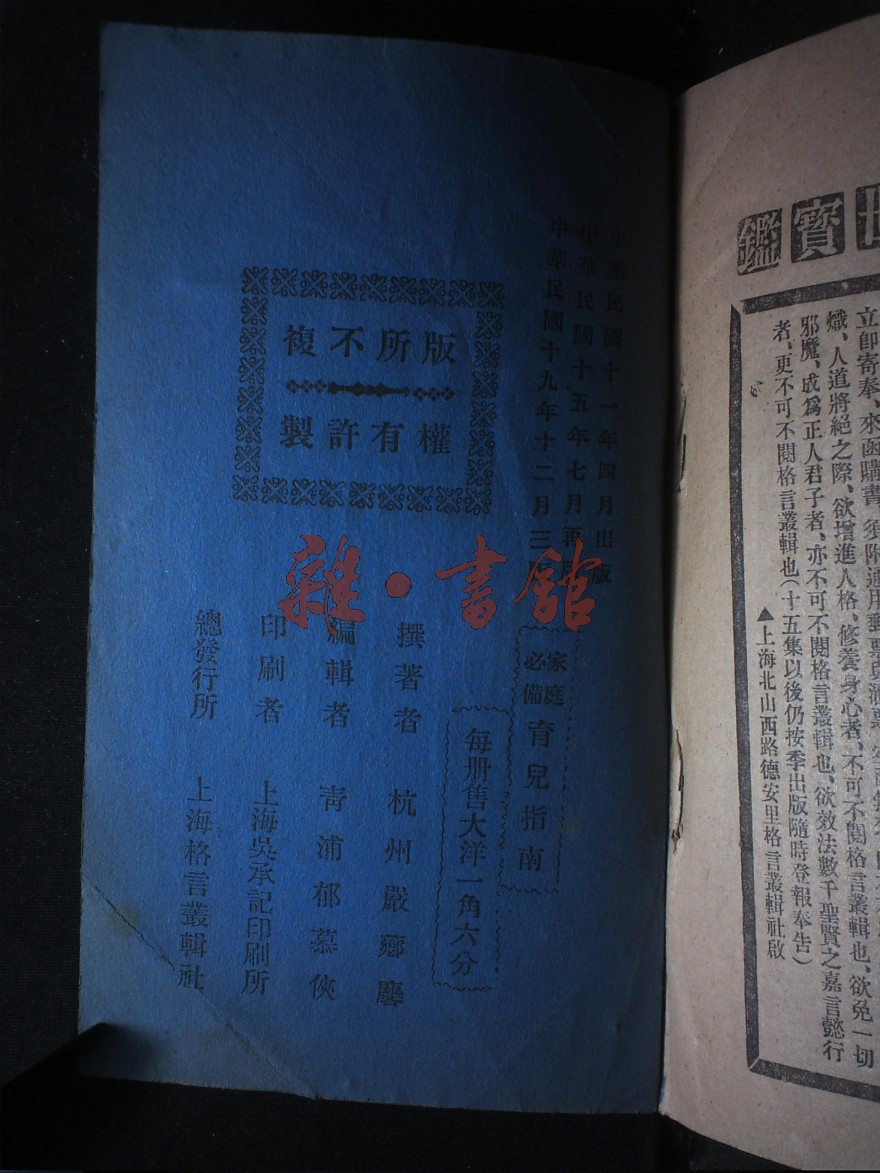 世寶鑑
立卽寄奉、來函購書、須附通用郵票
熾、人道將絕之際、欲增進人格、修養身心者、不可不閱格言叢輯也、欲免一切
邪魔、成爲正人君子者、亦不可不閱格言叢輯也、欲效法數千聖賢之嘉言懿行
者、更不可不閱格言叢輯也(十五集以後仍按季出版隨時登報奉告)
▲上海北山西路德安里格言叢輯社啟
中華民國十一年四月出版
中華民國十五年七月再版
中華民國十九年十二月三版
版權所有不許複製
家庭必備 育兒指南
每册售大洋一角六分
撰著者 杭州嚴薌
編輯者 靑浦郁慕俠
印刷者 上海吳承記印刷所
總發行所 上海格言叢輯社
雜·書舘